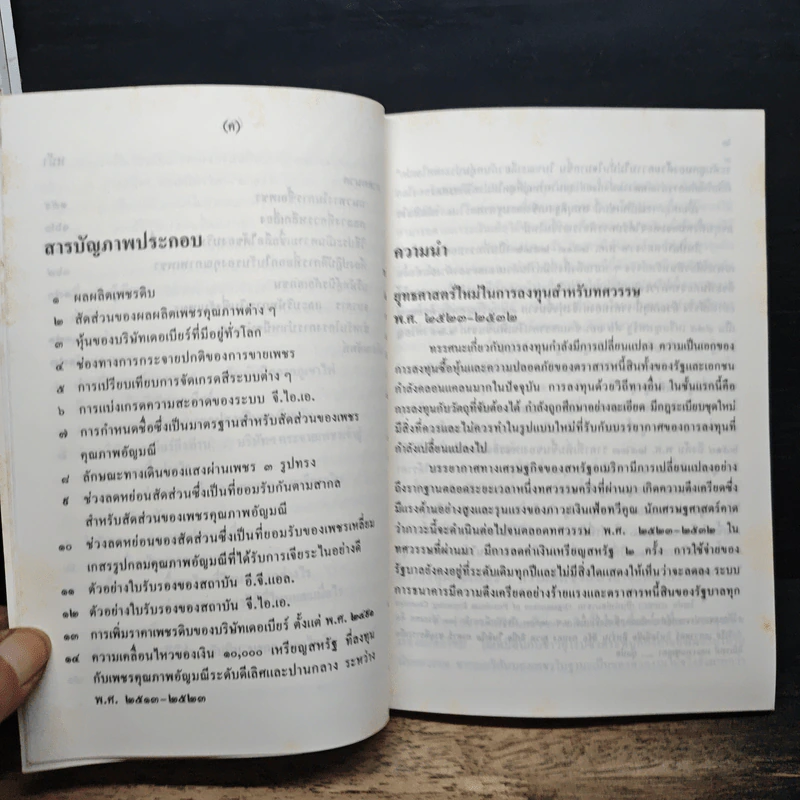 (ค)
สารบัญภาพประกอบ
๑ ผลผลิตเพชรดิบ
๒ สัดส่วนของผลผลิตเพชรคุณภาพต่าง ๆ
๓ หุ้นของบริษัทเดอเบียร์ที่มีอยู่ทั่วโลก
๔ ช่องทางการกระจายปกติของการขายเพชร
๕ การเปรียบเทียบการจัดเกรดสีระบบต่าง ๆ
๖ การแบ่งเกรดความสะอาดของระบบ จี.ไอ.เอ.
๗ การกำหนดชื่อซึ่งเป็นมาตรฐานสำหรับสัดส่วนของเพชร
คุณภาพอัญมณี
๘ ลักษณะทางเดินของแสงผ่านเพชร ๓ รูปทรง
๙ ช่วงลดหย่อนสัดส่วนซึ่งเป็นที่ยอมรับกันตามสากล
สำหรับสัดส่วนของเพชรคุณภาพอัญมณี
๑๐ ช่วงลดหย่อนของสัดส่วนซึ่งเป็นที่ยอมรับของเพชรเหลี่ยม
เกสรรูปกลมคุณภาพอัญมณีที่ได้รับการเจียระไนอย่างดี
๑๑ ตัวอย่างใบรับรองของสถาบัน อี.จี.แอล.
๑๒ ตัวอย่างใบรับรองของสถาบัน จี.ไอ.เอ.
๑๓ การเพิ่มราคาเพชรดิบของบริษัทเดอเบียร์ ตั้งแต่ พ.ศ. ๒๔๙๑
๑๔ ความเคลื่อนไหวของเงิน ๑๐,๐๐๐ เหรียญสหรัฐ ที่ลงทุน
กับเพชรคุณภาพอัญมณีระดับดีเลิศและปานกลาง ระหว่าง
พ.ศ. ๒๕๑๓-๒๕๒๓
ความนำ
ยุทธศาสตร์ใหม่ในการลงทุนสำหรับทศวรรษ
พ.ศ. ๒๕๒๓-๒๕๓๒
ทรรศนะเกี่ยวกับการลงทุนกำลังมีการเปลี่ยนแปลง ความเป็นเอกของ
การลงทุนซื้อหุ้นและความปลอดภัยของตราสารหนี้สินทั้งของรัฐและเอกชน
กำลังคลอนแคลนมากในปัจจุบัน การลงทุนด้วยวิธีทางอื่น ในขั้นแรกนี้คือ
การลงทุนกับวัตถุที่จับต้องได้ กำลังถูกศึกษาอย่างละเอียด มีกฎระเบียบชุดใหม่
มีสิ่งที่ควรและไม่ควรทำในรูปแบบใหม่ที่รับกับบรรยากาศของการลงทุนที่
กำลังเปลี่ยนแปลงไป
บรรยากาศทางเศรษฐกิจของสหรัฐอเมริกามีการเปลี่ยนแปลงอย่าง
ถึงรากฐานตลอดระยะเวลาหนึ่งทศวรรษครึ่งที่ผ่านมา เกิดความตึงเครียดซึ่ง
มีแรงต้านอย่างสูงและรุนแรงของภาวะเงินเฟ้อทวีคูณ นักเศรษฐศาสตร์คาด
ว่าภาวะนี้จะดำเนินต่อไปจนตลอดทศวรรษ พ.ศ. ๒๕๒๓-๒๕๓๒ ใน
ทศวรรษที่ผ่านมา มีการลดค่าเงินเหรียญสหรัฐ ๒ ครั้ง การใช้จ่ายของ
รัฐบาลยังคงอยู่ที่ระดับเดิมทุกปีและไม่มีสิ่งใดแสดงให้เห็นว่าจะลดลง ระบบ
การธนาคารมีความตึงเครียดอย่างร้ายแรงและตราสารหนี้สินของรัฐบาลทุก